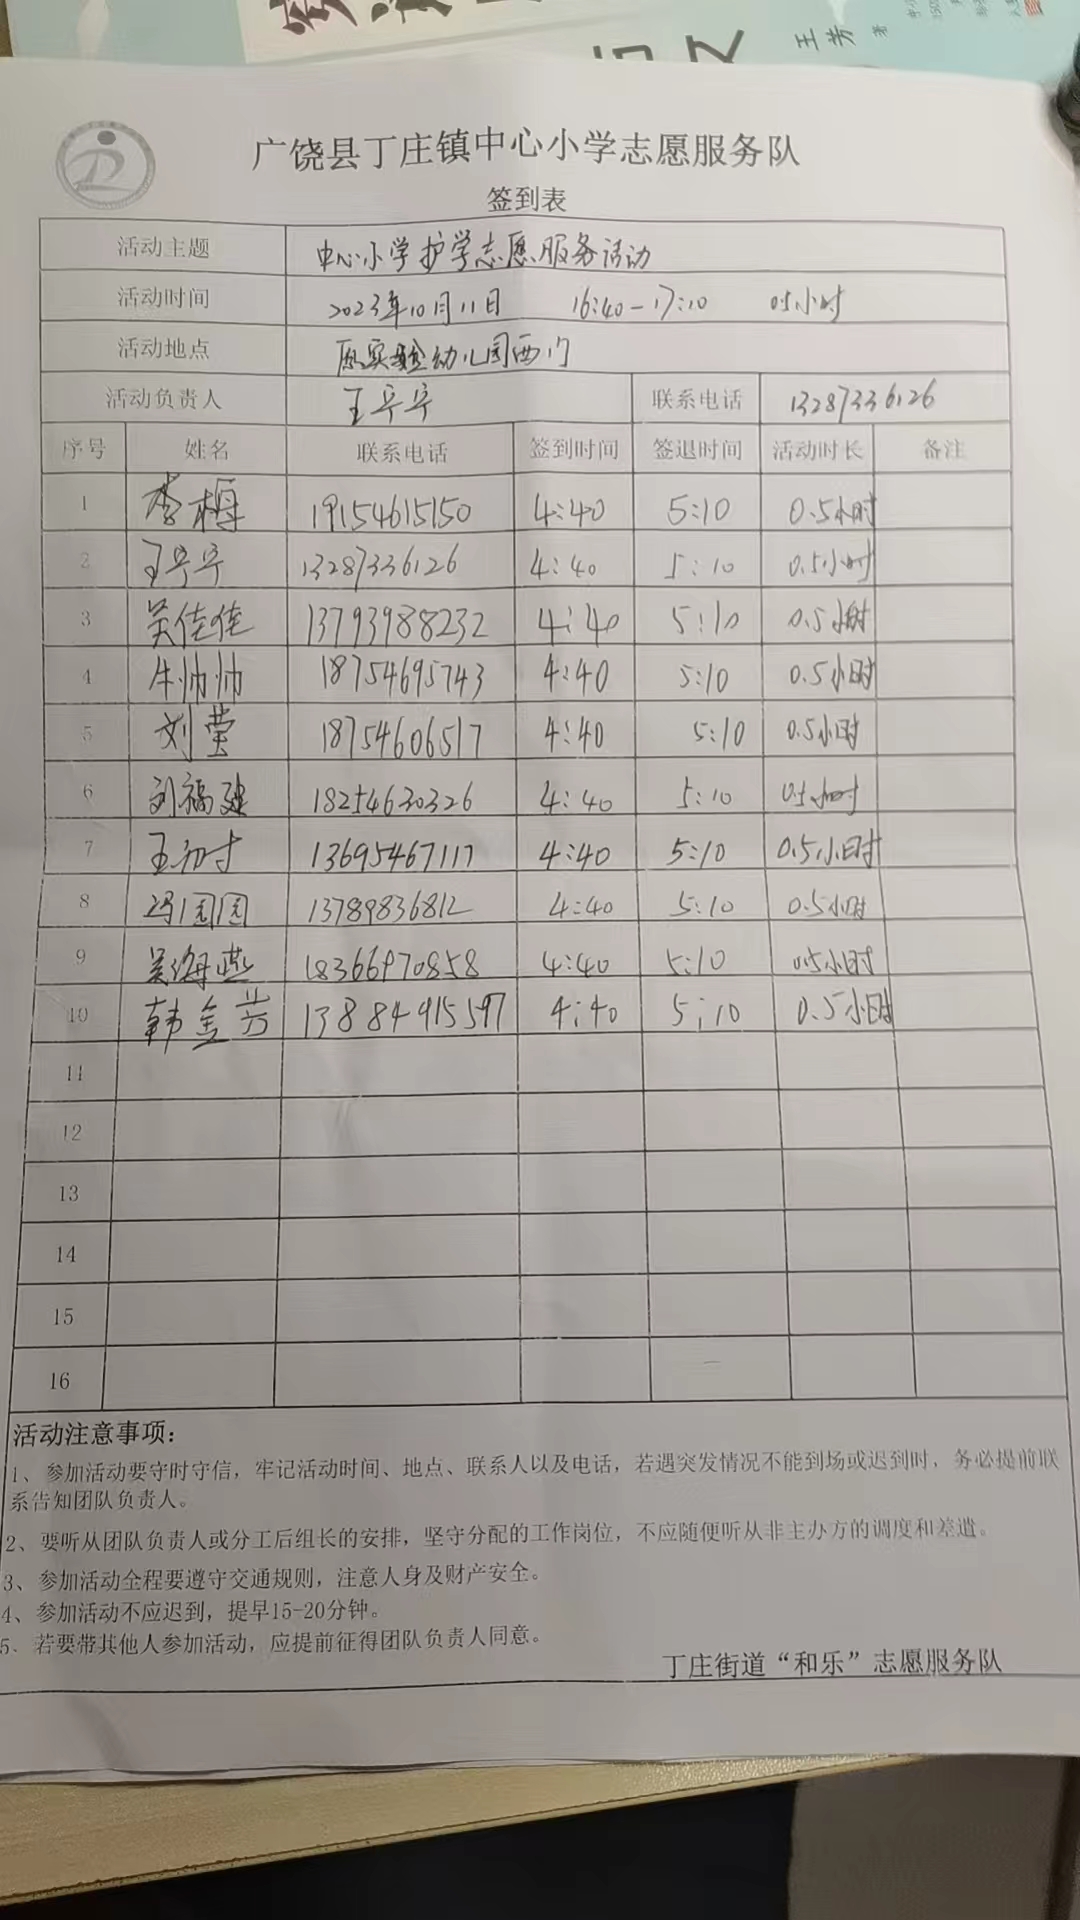 王芳 著
广饶县丁庄镇中心小学志愿服务队
签到表
活动主题 中心小学护学志愿服务活动
活动时间 2023年10月11日 16:40-17:10 0.5小时
活动地点 原实验幼儿园西门
活动负责人 王宁宁 联系电话 13287336126
序号 姓名 联系电话 签到时间 签退时间 活动时长 备注
1 李梅 19154615150 4:40 5:10 0.5小时
2 王宁宁 13287336126 4:40 5:10 0.5小时
3 吴佳佳 13793988232 4:40 5:10 0.5小时
4 牛帅帅 18754695743 4:40 5:10 0.5小时
5 刘莹 18754606517 4:40 5:10 0.5小时
6 刘福建 18254630326 4:40 5:10 0.5小时
7 王 13695467117 4:40 5:10 0.5小时
8 冯园园 13789836812 4:40 5:10 0.5小时
9 吴海燕 18366970858 4:40 5:10 0.5小时
10 韩金芳 13884915597 4:40 5:10 0.5小时
11
12
13
14
15
16
活动注意事项：
1、参加活动要守时守信，牢记活动时间、地点、联系人以及电话，若遇突发情况不能到场或迟到时，务必提前联
系告知团队负责人。
2、要听从团队负责人或分工后组长的安排，坚守分配的工作岗位，不应随便听从非主办方的调度和差遣。
3、参加活动全程要遵守交通规则，注意人身及财产安全。
4、参加活动不应迟到，提早15-20分钟。
5、若要带其他人参加活动，应提前征得团队负责人同意。
丁庄街道“和乐”志愿服务队